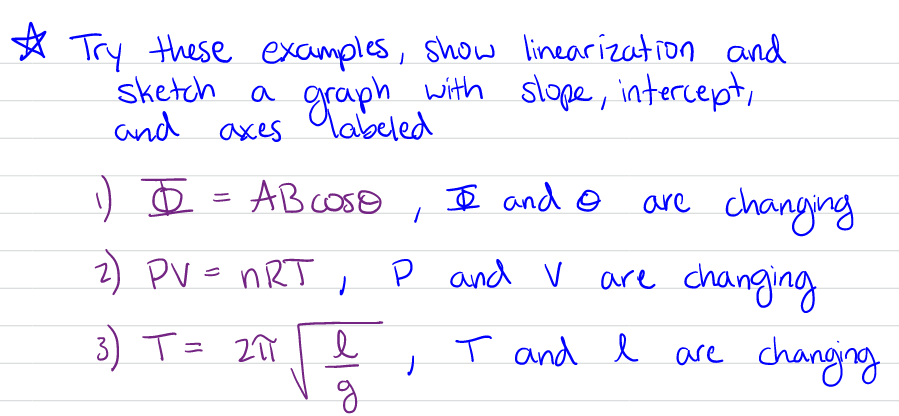 ☆ Try these examples, show linearization and
sketch a graph with slope, intercept,
and axes labeled
1) Φ = ABcosθ , Φ and θ are changing
2) PV = nRT , P and V are changing
3) T = 2π√(l/g) , T and l are changing